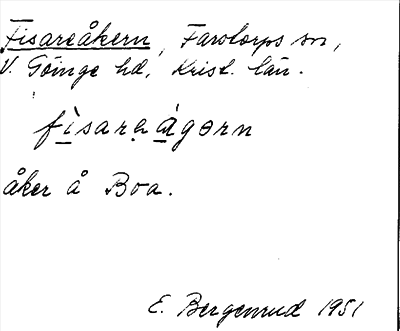 Fisareåkern, Farstorps sn,
V. Göinge hd, Krist. län.
fìsarɘágɘrn
åker å Boa.
E. Bergenrud 1951